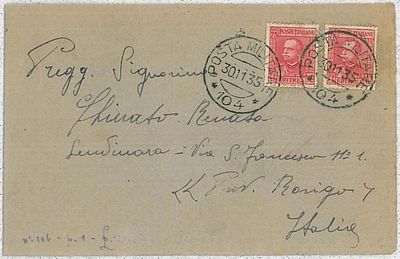 POSTE ITALIANE POSTE ITALIANE
POSTA MILITARE
30.11.35
* 104 *
POSTA MILITARE
30.11.35
* 104 *
ERITREA
Pregg. Signorina
Ghirato Renata
Lendinara - Via S. Francesco N° 1.
Prov. Rovigo
Italia
n° 106 - p. 1 -